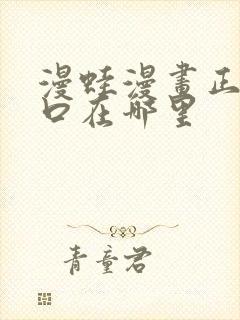 漫蛙漫畫正
口在哪里
青童君